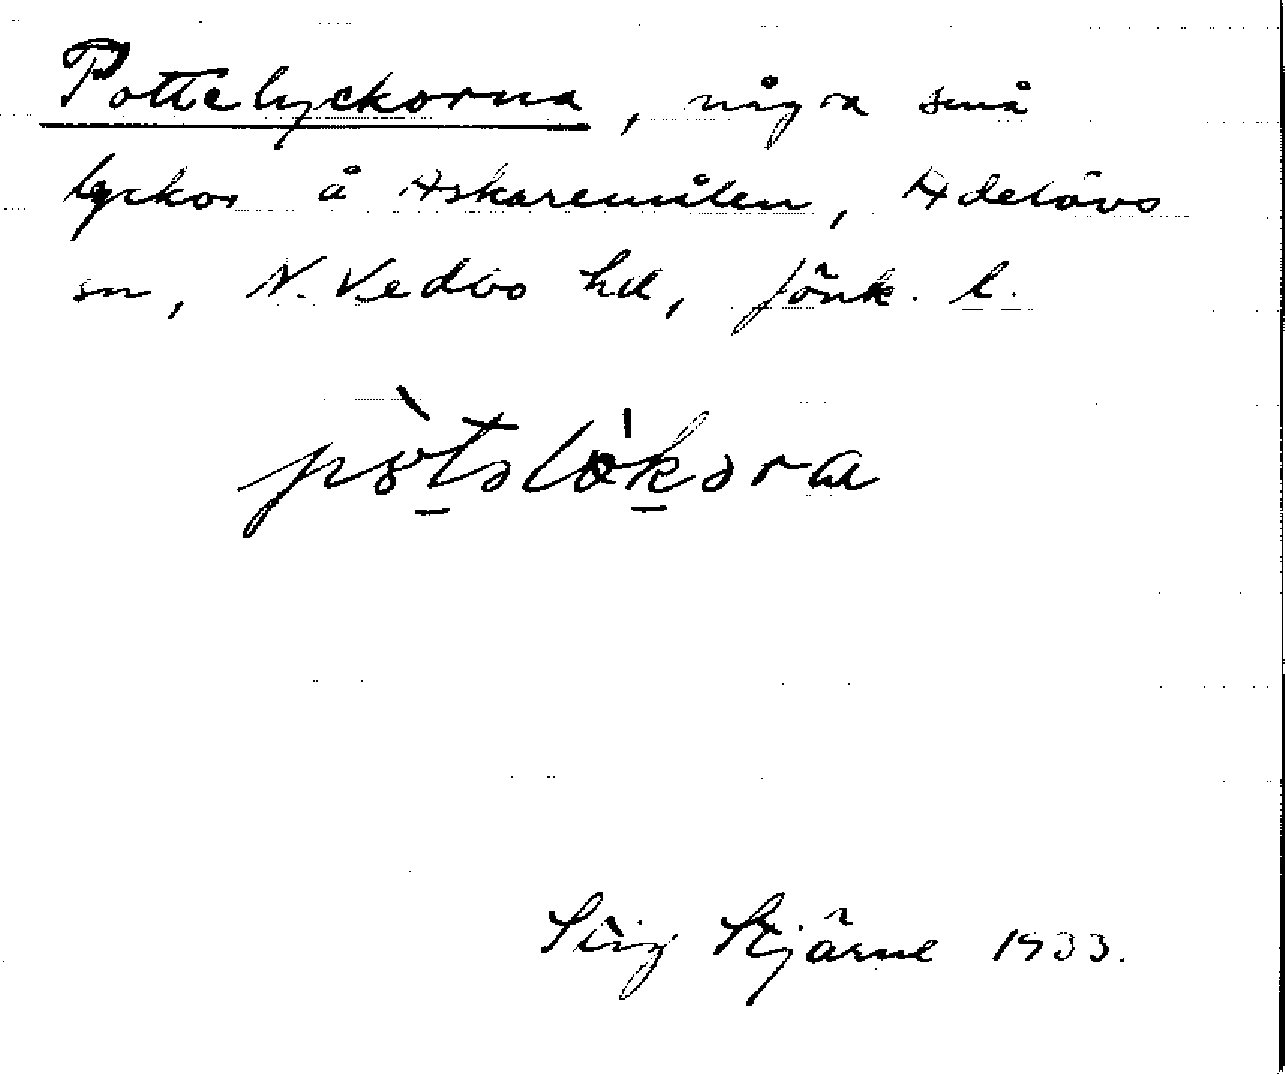 Pottelyckorna, några små
lyckor å Askaremålen, Adelövs
sn, N. Vedbo hd, Jönk. l.
Stig Stjärne 1933.